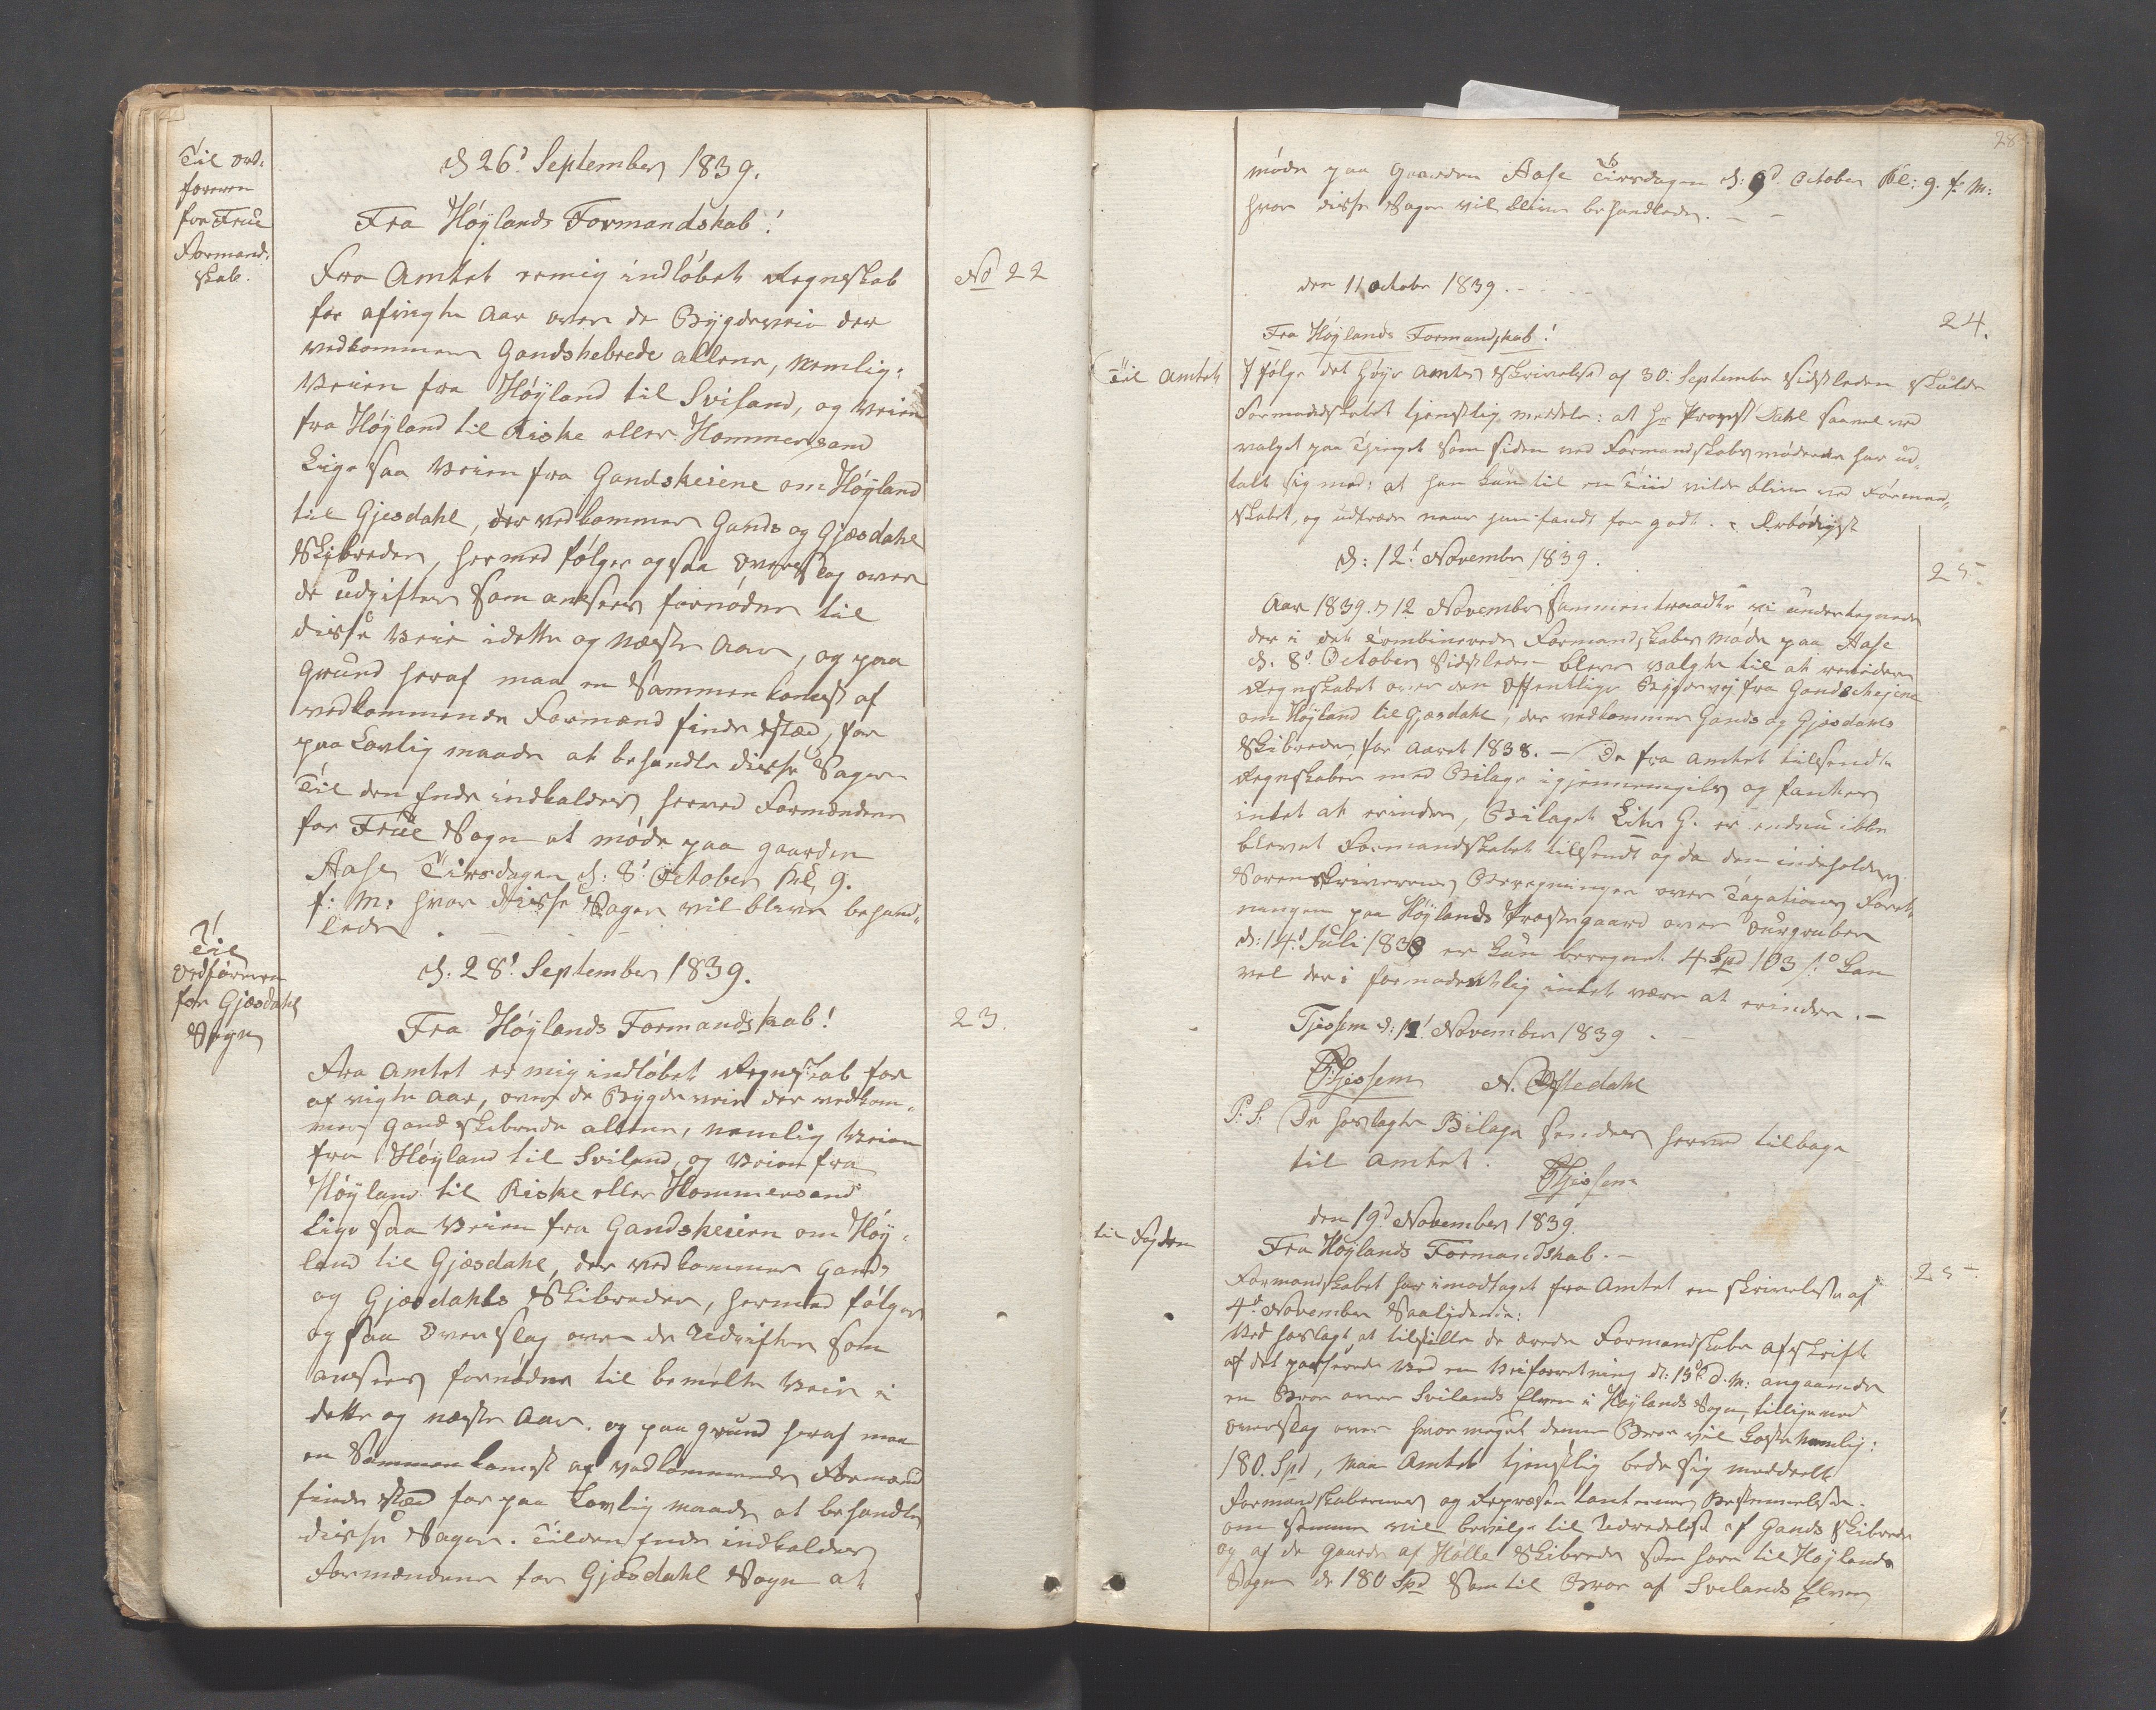 Til Ord-
føreren
for Frue
Formand-
skab.
d 26d September 1839.
Fra Høylands Formandskab!
No 22
Fra Amtet er mig indløbet Regnskab
for afvigte Aar over de Bygdeveie der
vedkommer Gandskebrede allene, nemlig:
Veien fra Høyland til Sviland, og Veien
fra Høyland til Riske eller Hommersand
Lige saa Veien fra Gandskeiene om Høyland
til Gjesdahl, der vedkommer Gands og Gjæsdahl
Skibreder, hermed følger ogsaa Overslag over
de Udgifter som ansees fornødne til
disse Veie i dette og næste Aar, og paa
Grund heraf maa en Sammenkomst af
vedkommende Formænd finde sted, for
paa Lovlig maade at behandle disse Sager
Til den Ende indkaldes herved Formændene
for Frue Sogn at møde paa Gaarden
Aase Tirsdagen d: 8d October Kl. 9.
f: M: hvor disse Sager vil blive behand-
lede.
Til
Ordføreren
for Gjæsdahl
Sogn
d. 28d September 1839.
Fra Høylands Formandskab!
23.
Fra Amtet er mig indløbet Regnskab for
afvigte Aar, over de Bygdeveie der vedkom-
mer Gandskibrede allene, nemlig Veien
fra Høyland til Sviland, og Veien fra
Høyland til Riske eller Hommersand
Lige saa Veien fra Gandskeien om Høy-
land til Gjæsdahl, der vedkommer Gands
og Gjæsdahls Skibreder, hermed følger
og saa Overslag over de Udgifter som
ansees fornødne til bemelte Veie i
dette og næste Aar. og paa Grund heraf maa
en Sammenkomst af vedkommende Formænd
finde sted for paa Lovlig maade at behandle
disse Sager. Til den Ende indkaldes
Formændene for Gjæsdahl Sogn at
28
møde paa Gaarden Aase Tirsdagen d: 8d October Kl: 9. f: M:
hvor disse Sager vil blive behandlede.
den 11 Octobr 1839.
24.
Fra Høylands Formandskab!
Til Amtet
I følge det høye Amtes Skrivelse af 30: September sidstleden skulde
Formandskabet tjenstlig meddele: at Hr Provst Dahl saavel ved
valget paa Thinget som siden ved Formandskabsmøderne har ud-
talt sig med: at han kun til en Tiid vilde blive ved Formand-
skabet, og udtræde naar han fandt for godt. Ærbødigst
d: 12! November 1839.
25.
Aar 1839. d 12 November sammentraadte vi undertegnede
der i det Combinerede Formandskabes Møde paa Aase
d. 8d October sidstleden blev valgte til at revidere
Regnskabet over den Offentlige Bygdevej fra Gandschejene
om Høyland til Gjæsdahl, der vedkommer Gands og Gjæsdahls
Skibreder for Aaret 1838. – De fra Amtet tilsendte
Regnskaber med Bilage igjennemgikes og fantes
intet at erindre, Bilaget Litr G. er endnu ikke
blevet Formandskabet tilsendt og da den indeholder
Sorenskriverens Beregninger over Taxations Forret-
ningen paa Høylands Præstegaard over Durgruber
d: 14d Juli 1838 er kun beregnet 4 Spd 103 s: kan
vel deri formodentlig intet være at erindre. –
Tjessem d: 12! November 1839
Tjessem N. Østedahl
P: S: De hoslagte Bilage sendes herved tilbage
til Amtet.
Tjessem
den 19d November 1839.
til Fogden
Fra Høylands Formandskab. –
25
Formandskabet har imodtaget fra Amtet en skrivelse af
4d November Saalydende:
Ved hoslagt at tilstille de ærede Formandskaber afskrift
af det passerede Ved en Veiforretning d: 15d d. M: angaaende
en Broe over Svilands Elven i Høylands Sogn, tilligemed
overslag over hvormeget denne Broe vil koste nemlig:
180. Spd, maa Amtet tjenstlig bede sig meddeelt
Formandskabernes og Repræsentanternes Bestemmelse
om samme vil bevilge til Udredelse af Gands Skibrede
og af de Gaarde af Hølle Skibrede som høre til Høylands
Sogn de 180 Spd som til Broe af Svelands Elven